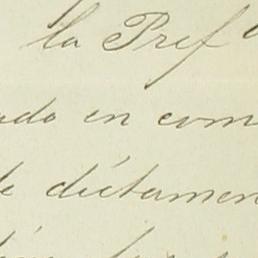 la Pref
ado en com
de dictamen